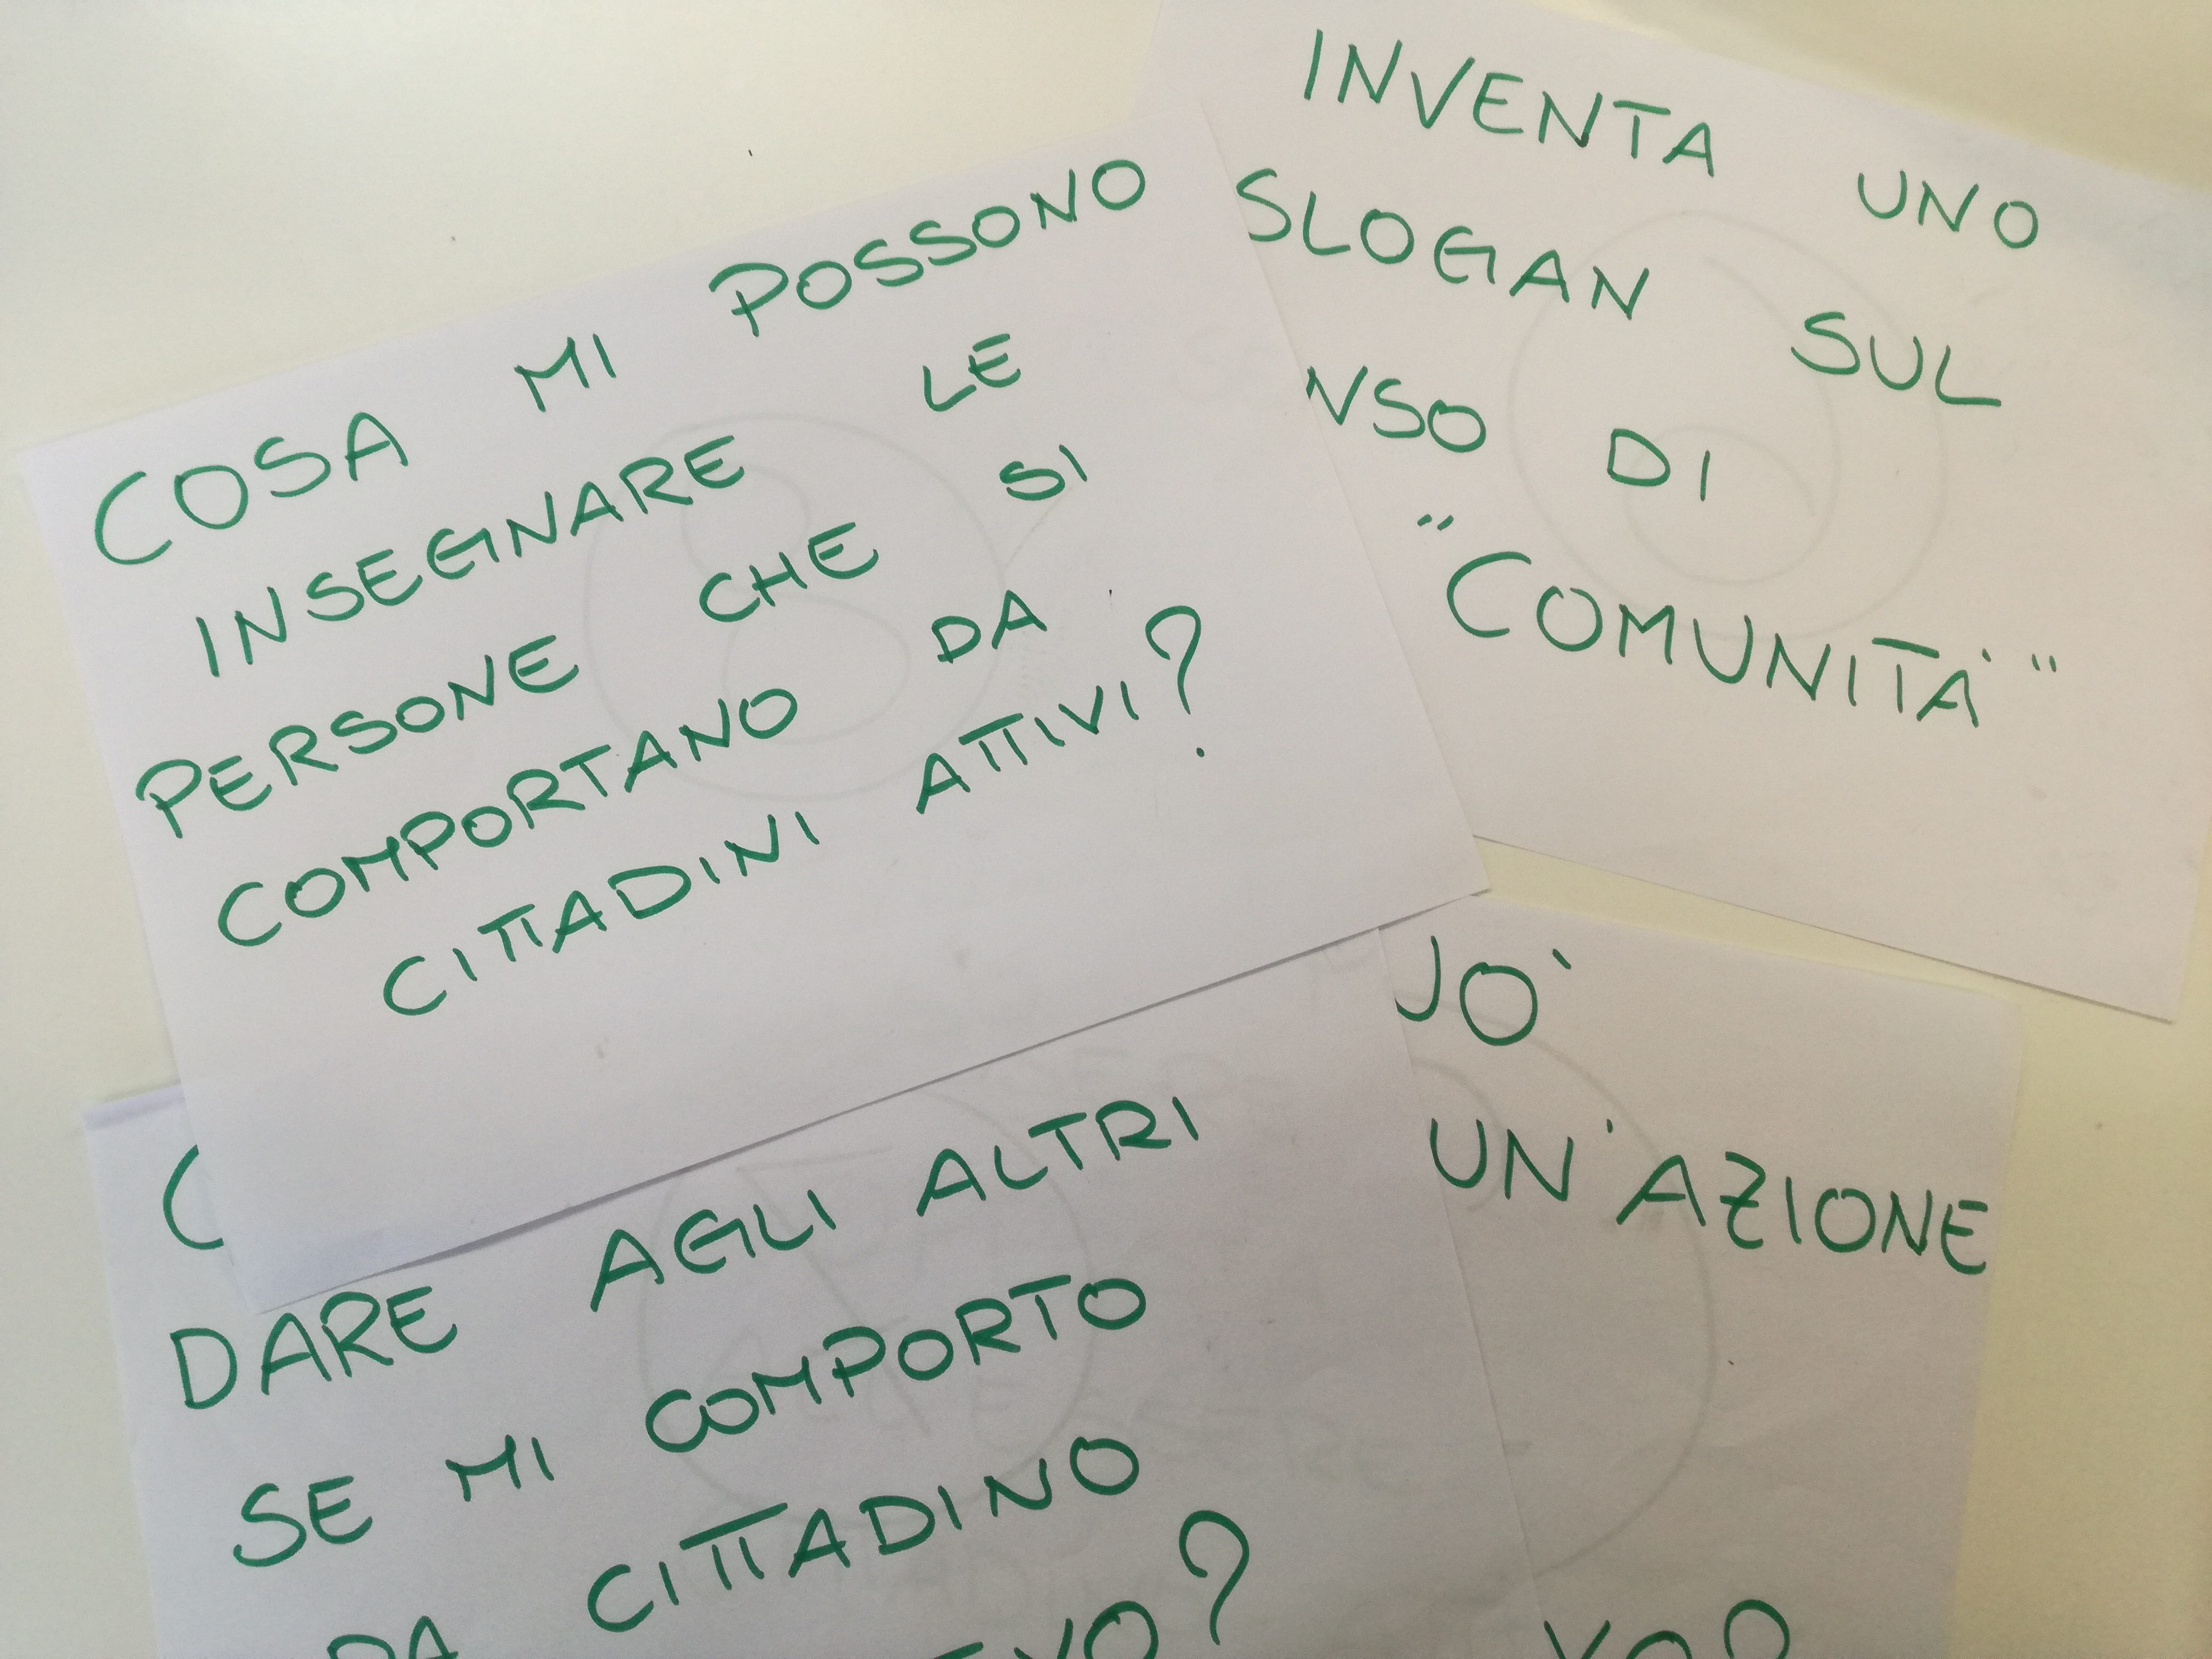 COSA MI POSSONO
INSEGNARE LE
PERSONE CHE SI
COMPORTANO DA
CITTADINI ATTIVI?
INVENTA UNO
SLOGAN SUL
NSO DI
"COMUNITÀ"
DARE AGLI ALTRI
SE MI COMPORTO
DA CITTADINO
UN'AZIONE